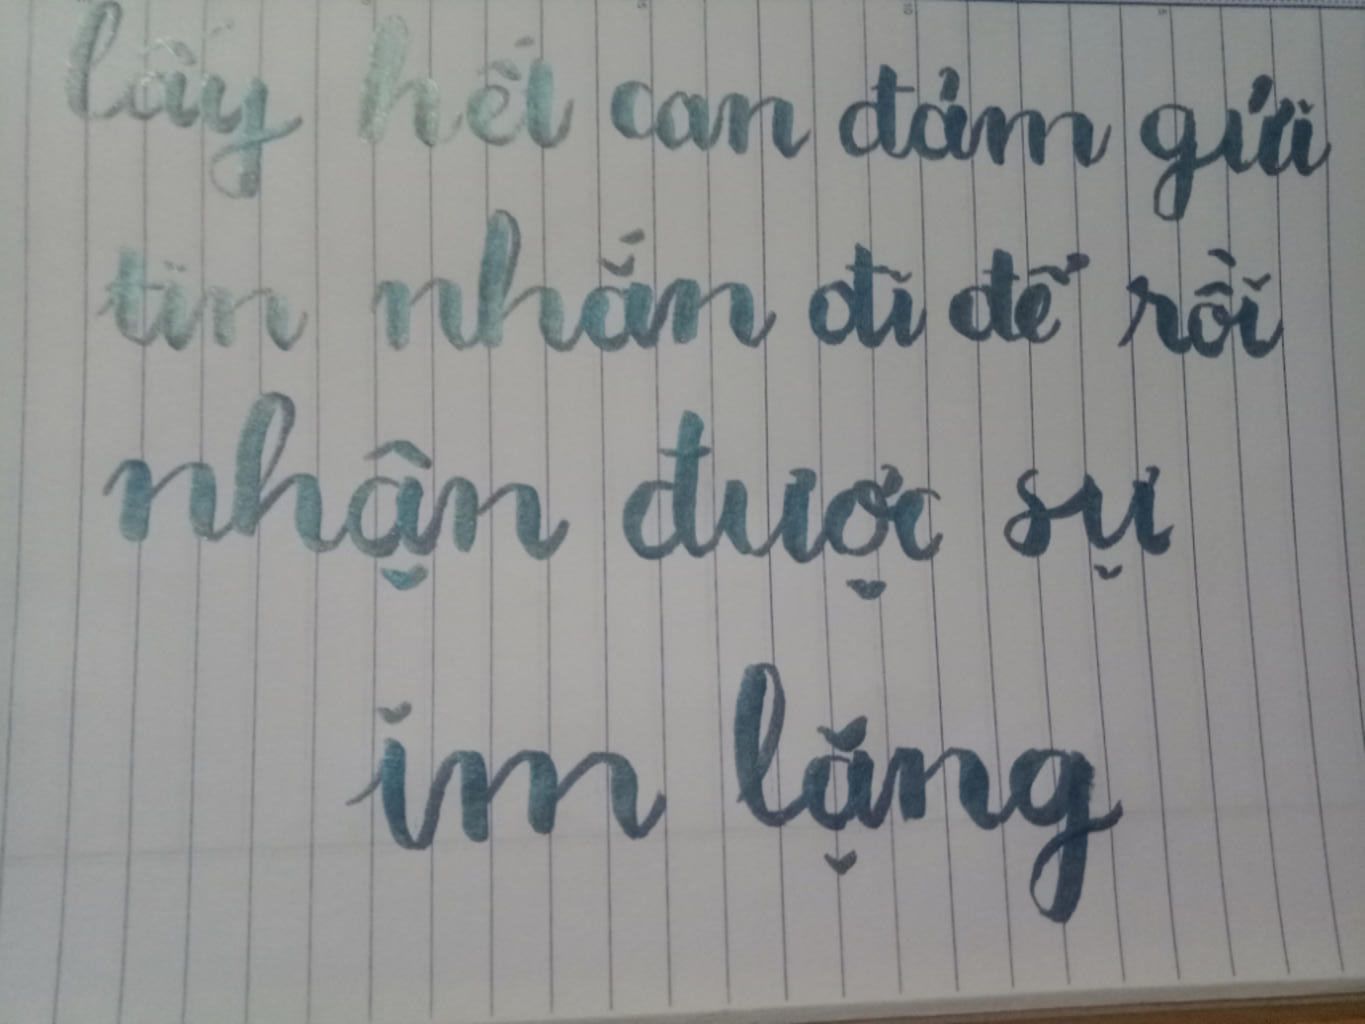 lấy hết can đảm gửi
tin nhắn đi để rồi
nhận được sự
im lặng